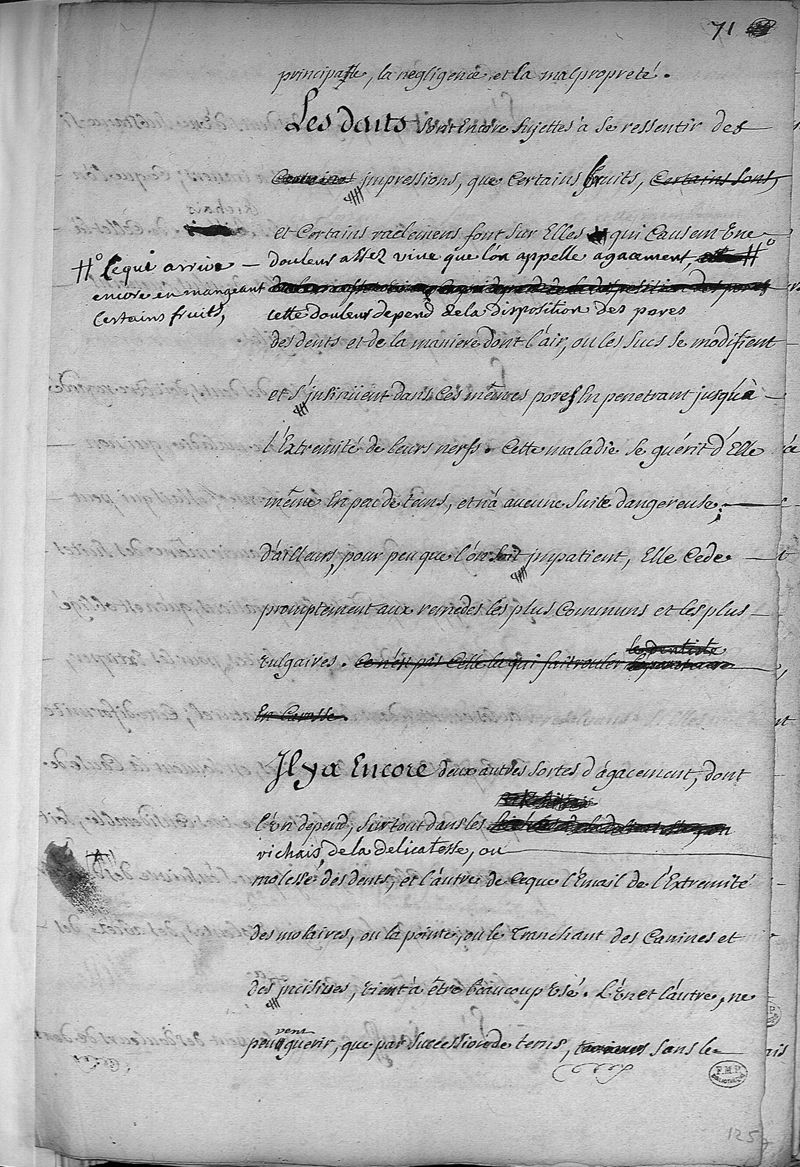 71
principalle, la négligence et la malpropreté.
Les dents sont Encore sujettes à se ressentir des
Certaines impressions, que Certains fruits, Certains sons,
et Certains raclemens font sur Elles qui Causent Une
douleur assez vive que l'on appelle agacement, #°
#° Cequi arrive
encore en mangeant
Certains fruits,
cette douleur depend de la disposition des pores
des dents et de la maniere dont l'air, ou les sucs se modifient
et s'insinüent dans Ces mêmes pores En penetrant jusqu'à
l'Extremité de leurs nerfs. Cette maladie se guérit d'Elle
même En peu de tems, et n'a aucune suite dangereuse;
d'ailleurs, pour peu que l'on soit impatient, Elle Cede
promptement aux remedes les plus Communs et les plus
vulgaires. Ce n'est pas Celle la qui fait rouler le dentiste
En Carosse.
Il y a Encore deux autres sortes d'agacement, dont
l'Un depend, surtout dans les
vichais, de la delicatesse, ou
molesse des dents, et l'autre de Ceque l'Email de l'Extremité
des molaires, ou la pointe, ou le Tranchant des Canines et
des incisives, vient à être beaucoup Usé. L'Un et l'autre, ne
peuvent guérir, que par succession de tems, sans le
F.M.P.
BIBLIOTHEQUE
125